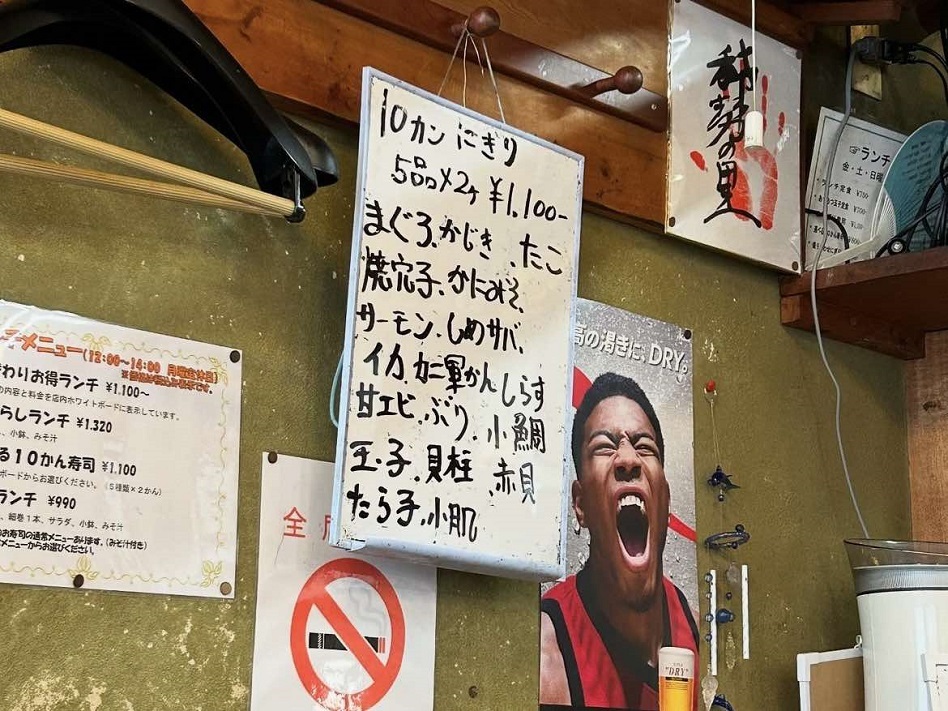 10カン にぎり
5品×2ヶ ¥1,100-
まぐろ.かじき.たこ
焼穴子.かにみそ.
サーモン.しめサバ.
イカ.カニ軍かん しらす
甘エビ.ぶり.小鯛
玉子.貝柱.赤貝
たら子.小肌
メニュー(12:00~14:00 月曜定休日)
わりお得ランチ ¥1,100~
の内容と料金を店内ホワイトボードに表示しています。
らしランチ ¥1,320
、小鉢、みそ汁
る10かん寿司 ¥1,100
ボードからお選びください。(5種類×2かん)
ランチ ¥990
、細巻1本、サラダ、小鉢、みそ汁
のお寿司の通常メニューあります。(みそ汁付き)
メニューからお選びください。
全
高の渇きに、DRY。
"DRY"
の里
ランチ
金・土・日曜